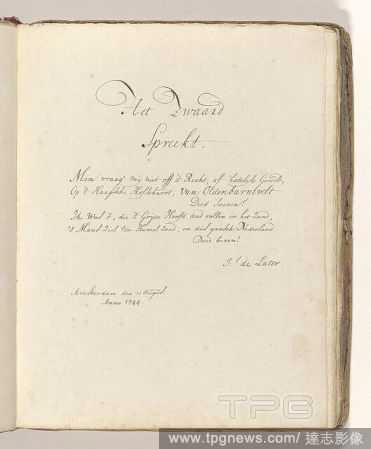 Het Zwaard
Spreekt.
Men vraag' mij niet off 't Recht, of
Op 't Haagsche Hofschavot, van Oldenbarnevelt
Deed sneven?
Ik Was 't, die 't Grijze Hoofd dee vallen in het Zand,
's Mans Ziel ten Hemel Zond, en dus gansch Nederland
Deed beven!
J.s de Later.
Amsterdam den 11 August.
Anno 1744.
TPG
www.tpgnews.com/達志影像